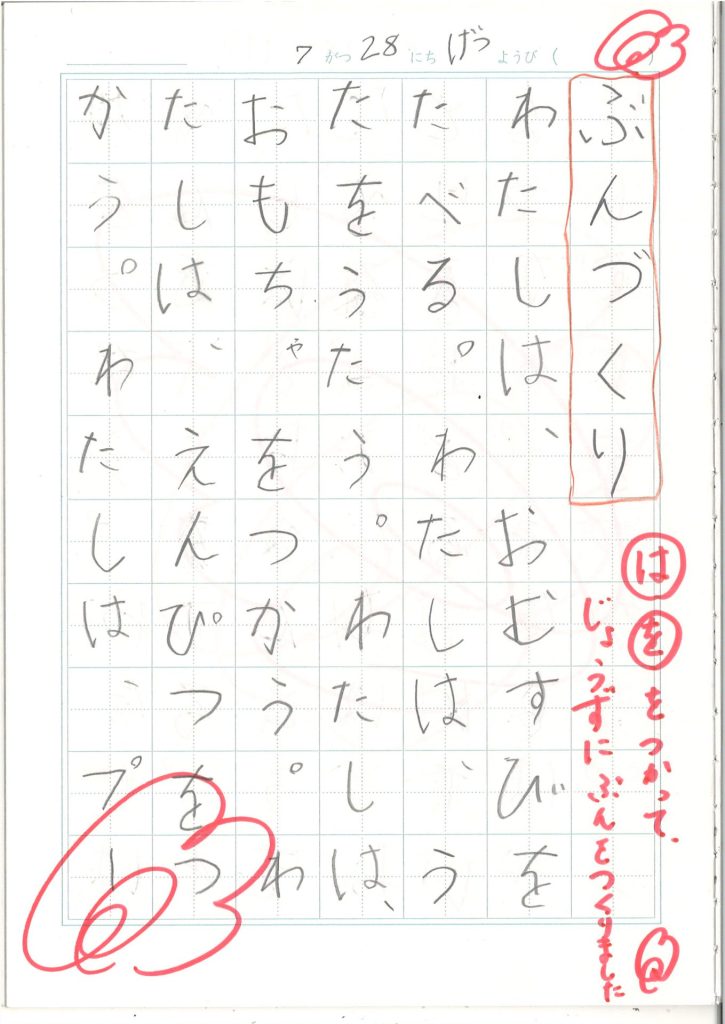 7 がつ 28 にち げつ ようび ( )
ぶんづくり
わたしは、おむすびを
たべる。わたしは、う
たをうたう。わたしは、
おもちゃをつかう。わ
たしは、えんぴつをつ
かう。わたしは、プー
はををつかって、
じょうずにぶんをつくりました